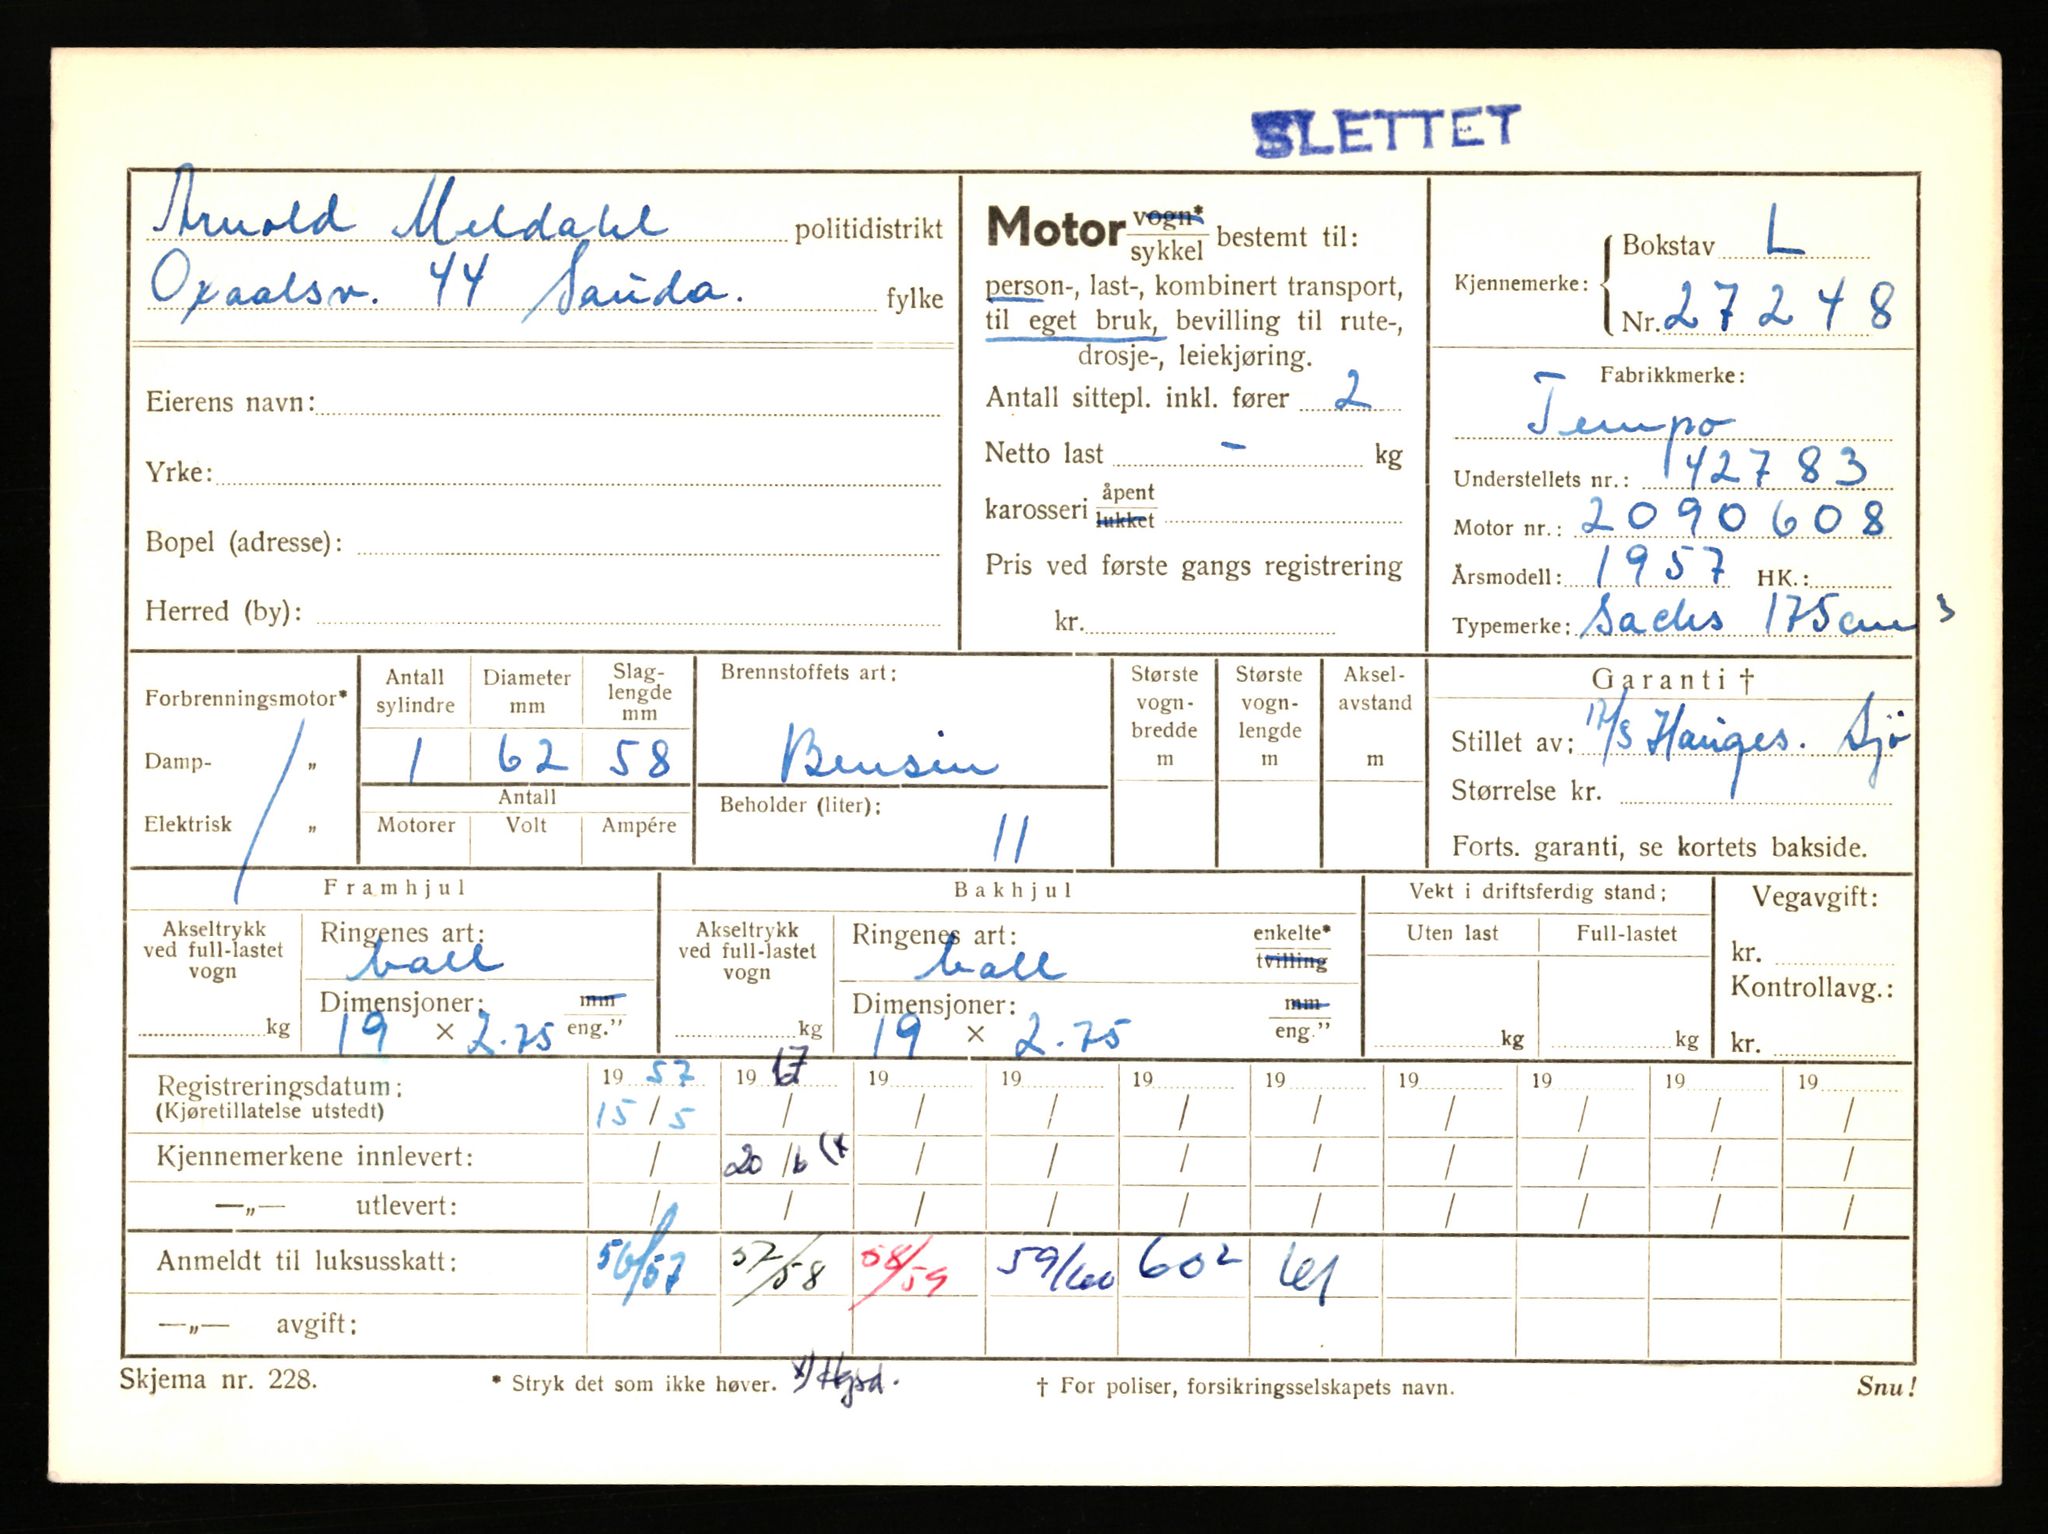 SLETTET
Arnold Meldahl politidistrikt
Oxaalsv. 44 Sauda. fylke
Eierens navn:
Yrke:
Bopel (adresse):
Herred (by):
Motor vogn* sykkel bestemt til:
person-, last-, kombinert transport,
til eget bruk, bevilling til rute-,
drosje-, leiekjøring.
Antall sittepl. inkl. fører 2
Netto last - kg
karosseri åpent lukket
Pris ved første gangs registrering
kr.
Kjennemerke: Bokstav L
Nr. 27248
Fabrikkmerke:
Tempo
Understellets nr.: 142783
Motor nr.: 2090608
Årsmodell: 1957 HK.:
Typemerke: Sachs 175 cm3
Forbrenningsmotor*
Damp- „
Elektrisk „
Antall sylindre Diameter mm Slag-lengde mm
1 62 58
Antall
Motorer Volt Ampére
Brennstoffets art:
Bensin
Beholder (liter):
11
Største vogn-bredde m
Største vogn-lengde m
Aksel-avstand m
Garanti †
Stillet av: 17/5 Hauges. Sjø
Størrelse kr.
Forts. garanti, se kortets bakside.
Framhjul
Akseltrykk ved full-lastet vogn
kg
Ringenes art:
ball
Dimensjoner: mm
19 × 2.75 eng.”
Bakhjul
Akseltrykk ved full-lastet vogn
kg
Ringenes art: enkelte*
ball tvilling
Dimensjoner: mm
19 × 2.75 eng.”
Vekt i driftsferdig stand:
Uten last Full-lastet
kg kg
Vegavgift:
kr.
Kontrollavg.:
kr.
Registreringsdatum: 19 57 19 67 19 19 19 19 19 19 19 19
(Kjøretillatelse utstedt) 15 / 5 / / / / / / / / /
Kjennemerkene innlevert: / 20 / 6 (x / / / / / / / /
—„— utlevert: / / / / / / / / / /
Anmeldt til luksusskatt: 56/57 57/58 58/59 59/60 60² 61
—„— avgift:
Skjema nr. 228. * Stryk det som ikke høver. x) † For poliser, forsikringsselskapets navn. Snu!